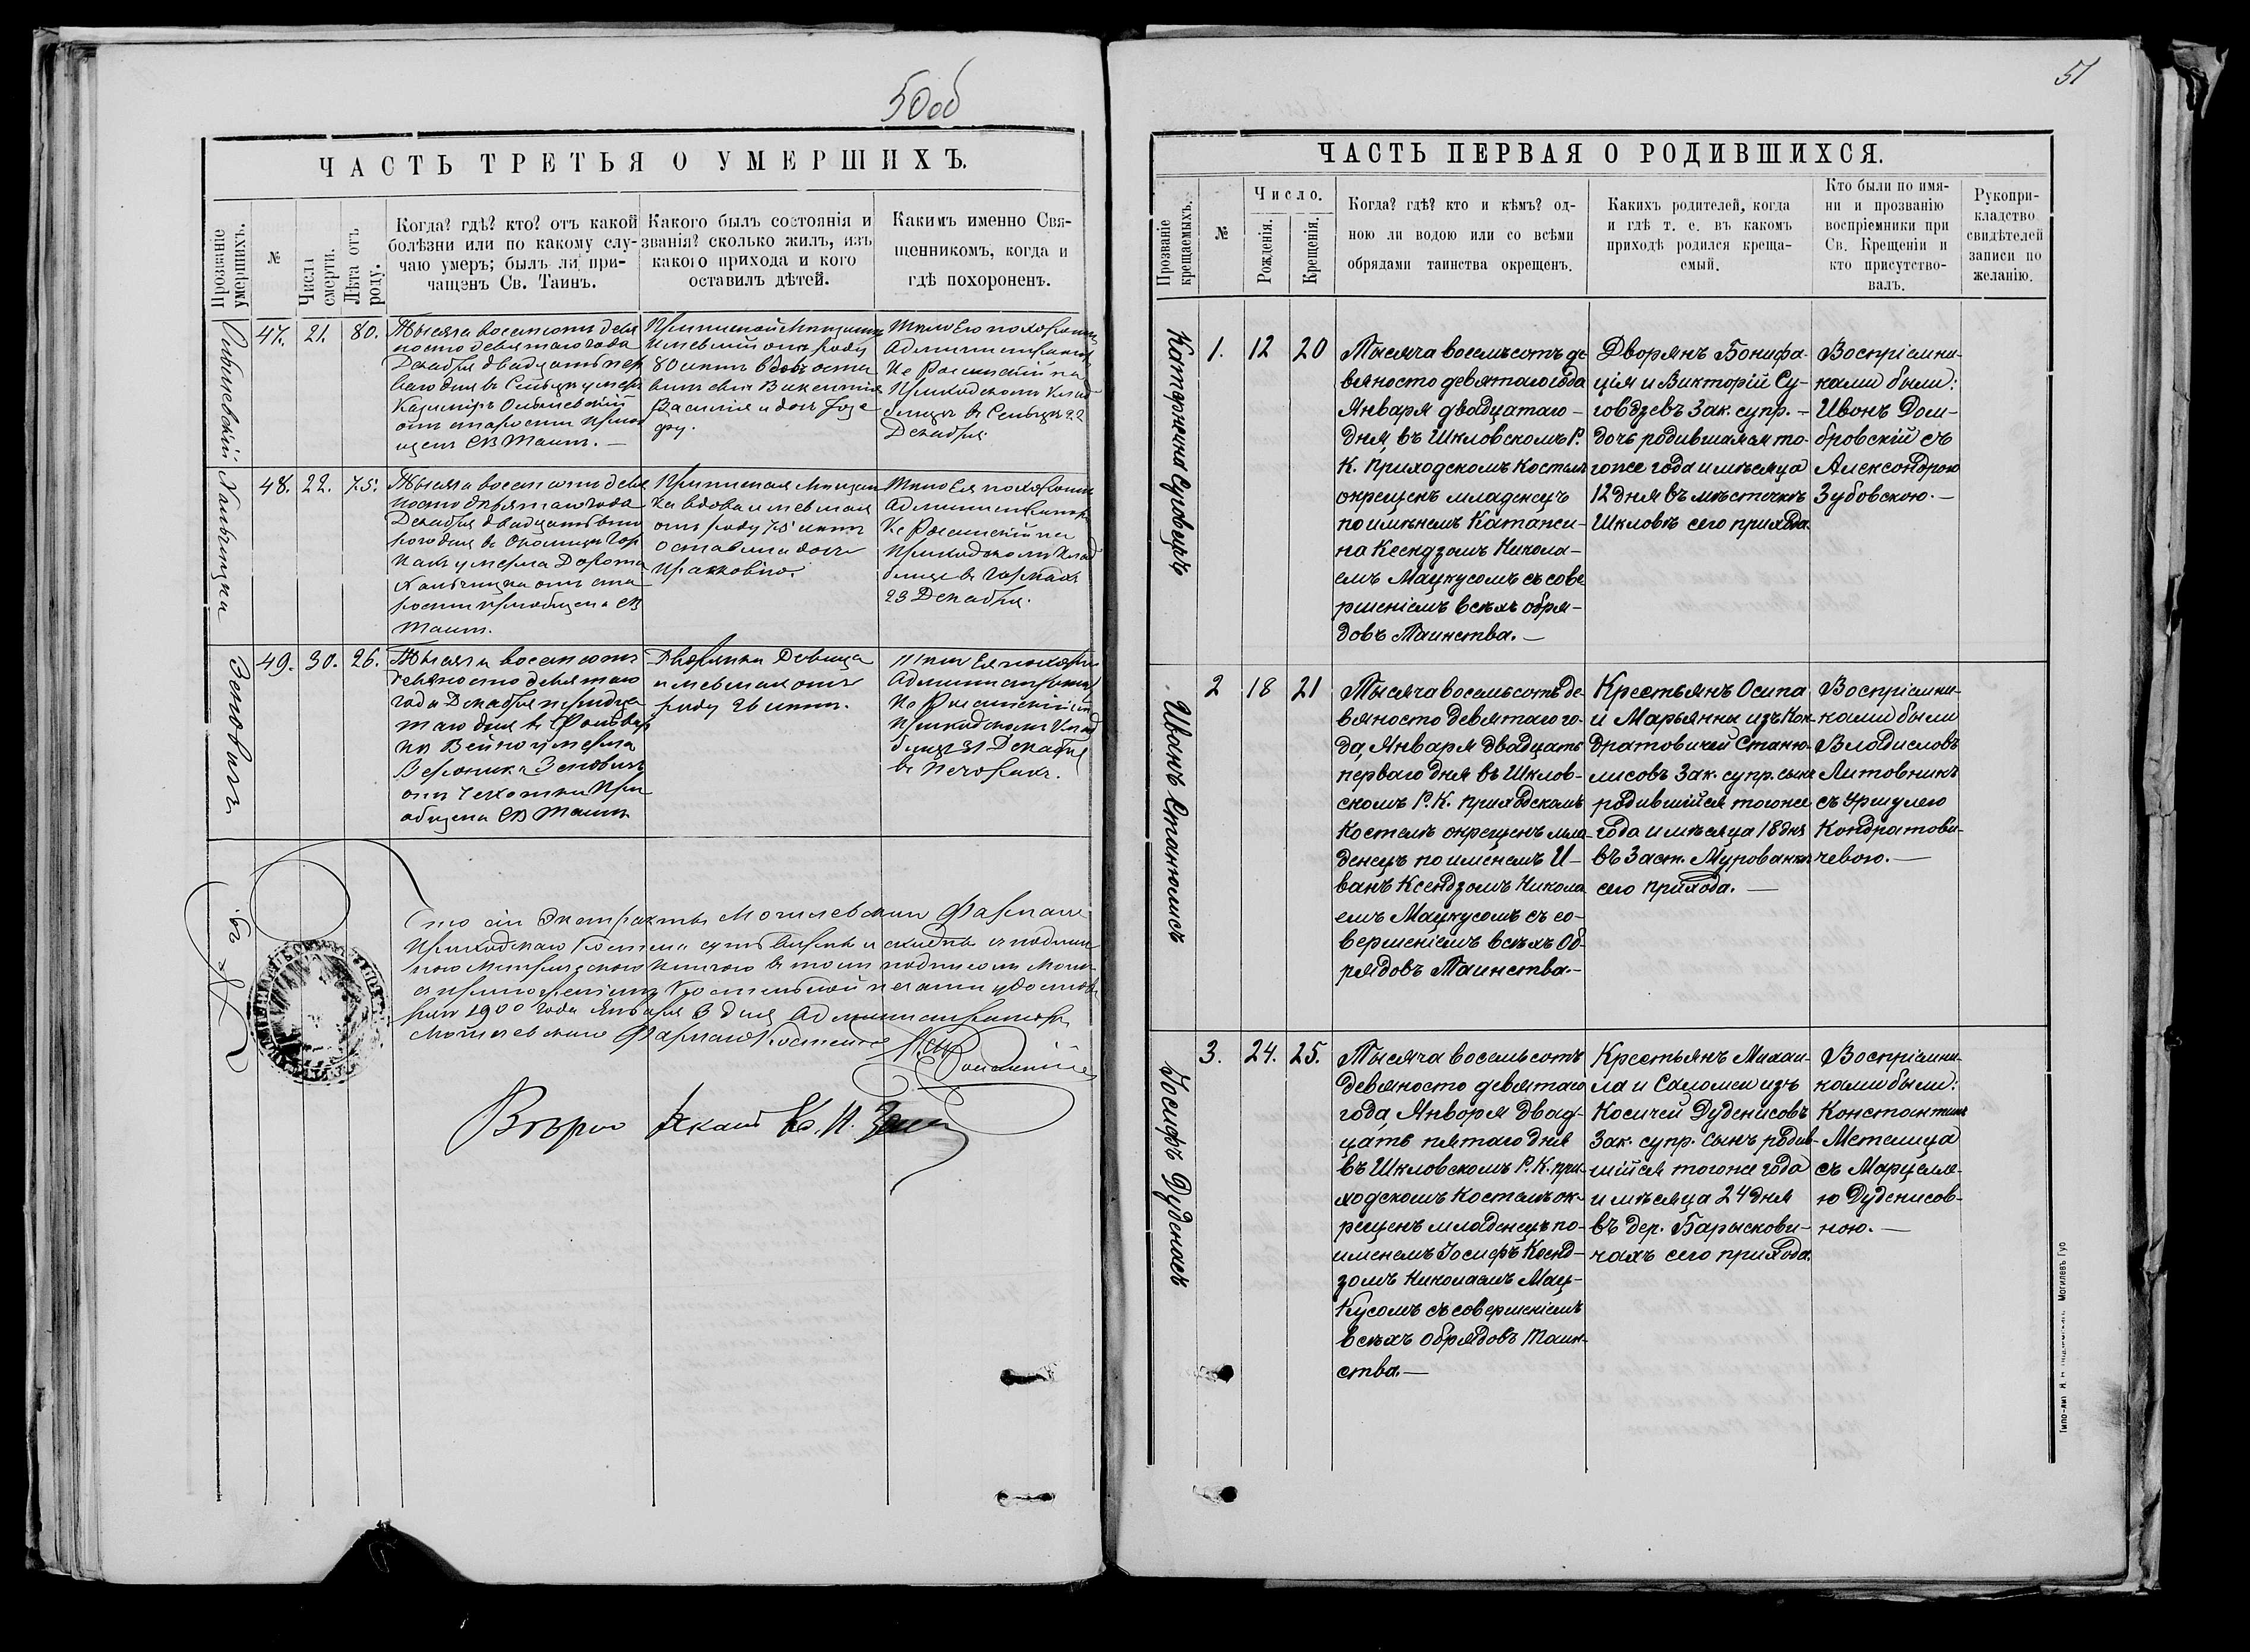 50об
ЧАСТЬ ТРЕТЬЯ О УМЕРШИХЪ.
Прозваніе умершихъ.
№
Числа смерти.
Лѣта отъ роду.
Когда? гдѣ? кто? отъ какой
болѣзни или по какому слу-
чаю умеръ; былъ ли при-
чащенъ Св. Таинъ.
Какого былъ состоянія и
званія? сколько жилъ, изъ
какого прихода и кого
оставилъ дѣтей.
Какимъ именно Свя-
щенникомъ, когда и
гдѣ похороненъ.
47.
21.
80.
Тысяча восемсотъ девя
носто девятаго года
Декабря двадцать пер
ваго дня в
Казимиръ
отъ старости
СВ Таинъ. —
80 лѣтъ вдовъ оста
вилъ
Василія и дочь Юзе
фу.
Тѣло Его похоронен
Администраторъ
Приходскомъ Клад
22
Декабря
48.
22.
75.
Тысяча восемсотъ девя
носто девятаго года
Декабря двадцать вто
рого дня в Околицы Гор
умерла Дорота
отъ ста
рости приобщена СВ
Таинъ.
ка вдова имевшая
отъ роду 75 лѣтъ
оставила дочь
Тѣло Ея похорон
Администратор
Приходскомъ Клад
бище в Горках
23 Декабря.
Зеновичъ
49.
30.
26.
Тысяча восемсотъ
девяносто девятаго
года Декабря тридца
таго дня в Фольвар
ке Вейно умерла
Вероника Зеновичъ
отъ Чехотки При
общена СВ Таинъ
Дворянка Девица
имевшая отъ
роду 26 лѣтъ.
Тѣло Ея похорон
Администратор
Приходскомъ Клад
бище 31 Декабря
в Печорахъ.
Что сіи Экстракты Могилевскаго Фарнаго
Приходскаго Костела суть вѣрны и сходны с подлин
ною Метрическою книгою в томъ подписомъ Моим
с приложеніемъ Костельной печати удостовѣ
ряю 1900 года Января 3 дня Администратор
Могилевскаго Фарнаго Костела
Вѣрно Декан Кс. И.
51
ЧАСТЬ ПЕРВАЯ О РОДИВШИХСЯ.
Прозваніе крещаемыхъ.
№
Число.
Рожденія.
Крещенія.
Когда? гдѣ? кто и кѣмъ? од-
ною ли водою или со всѣми
обрядами таинства окрещенъ.
Какихъ родителей, когда
и гдѣ т. е. въ какомъ
приходѣ родился креща-
емый.
Кто были по имя-
ни и прозванію
воспріемники при
Св. Крещеніи и
кто присутство-
валъ.
Рукопри-
кладство
свидѣтелей
записи по
желанію.
1.
12
20
Тысяча восемьсотъ де
вяносто девятаго года
Января двадцатаго —
дня въ Шкловскомъ Р.
К. приходскомъ Костелѣ
окрещенъ младенецъ
по именемъ Катаржи-
на Ксендзомъ Никола-
емъ Мацкусомъ съ сове
ршеніемъ всѣхъ обря-
довъ Таинства. —
Дворянъ Бонифа-
ція и Викторій Су-
говдзевъ Зак. супр. —
дочь родившаяся то-
гоже года и мѣсяца
12 дня въ мѣстечкѣ
Шкловѣ сего прихода.
Воспріемни-
ками были:
Ивонъ Дом-
бровскій съ
Александрою
Зубовскою. —
Иванъ Станюлисъ
2
18
21
Тысяча восемьсотъ де-
вяносто девятаго го-
да, Января двадцать
перваго дня въ Шклов-
скомъ Р. К. приходскомъ
Костелѣ окрещенъ мла-
денецъ по именемъ И-
ванъ Ксендзомъ Никола
емъ Мацкусомъ съ со-
вершеніемъ всѣхъ Об-
рядовъ Таинства. —
Крестьянъ Осипа
и Марьянны изъ Кон-
дратовичей Станю-
лисовъ Зак. супр. сынъ
родившійся тогоже
года и мѣсяца 18 дня
въ Заст. Мурованкѣ
сего прихода. —
Воспріемни-
ками были
Владиславъ
Литовникъ
съ Уршулею
Кондратови-
чевою. —
Іосифъ Дуденасъ
3.
24.
25.
Тысяча восемьсотъ
девяносто девятаго
года, Января двад-
цать пятаго дня
въ Шкловскомъ Р. К. при-
ходскомъ Костелѣ ок-
рещенъ младенецъ по-
именемъ Іосифъ Ксенд-
зомъ Николаемъ Мац-
кусомъ съ совершеніемъ
всѣхъ обрядовъ Таин-
ства. —
Крестьянъ Михаи-
ла и Саломеи изъ
Косичей Дуденисовъ
Зак. супр. сынъ родив-
шійся тогоже года
и мѣсяца 24 дня
въ дер. Барыскови-
чахъ сего прихода.
Воспріемни-
ками были:
Константинъ
Метелица
съ Марцелле-
ю Дуденисов-
ною. —